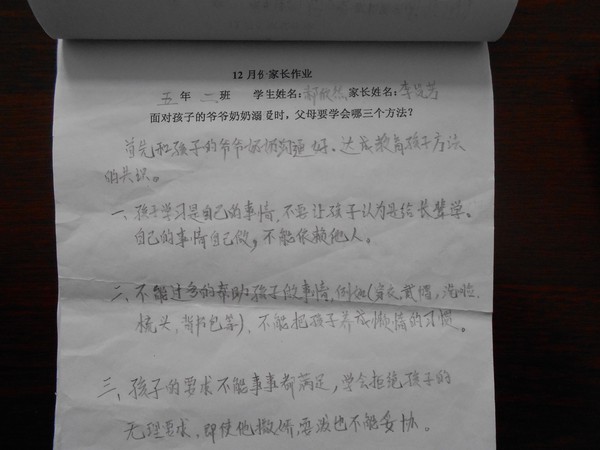 12月份家长作业
五年二班 学生姓名:郭欣 家长姓名:李芳
面对孩子的爷爷奶奶溺爱时,父母要学会哪三个方法?
首先和孩子的爷爷奶奶沟通好、达成教育孩子方法
的共识。
一、孩子学习是自己的事情,不要让孩子认为是给长辈学。
自己的事情自己做,不能依赖他人。
二、不能过多的帮助孩子做事情,例如(穿衣,戴帽,洗脸,
梳头,背书包等),不能把孩子养成懒惰的习惯。
三、孩子的要求不能事事都满足,学会拒绝孩子的
无理要求,即使他撒娇,耍泼也不能妥协。